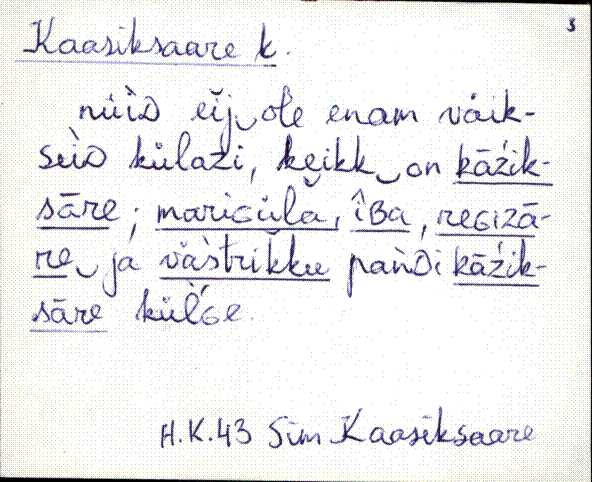 s
Kaasiksaare k.
nüìᴅ eij‿ole enam väik-
seiᴅ külaži, keikk‿on kāžik-
sāre; mariɢüla, îʙa, reɢizā-
re‿ja västrikku pańᴅi kāžik-
sāre külɢe.
H.K.43 Sim Kaasiksaare